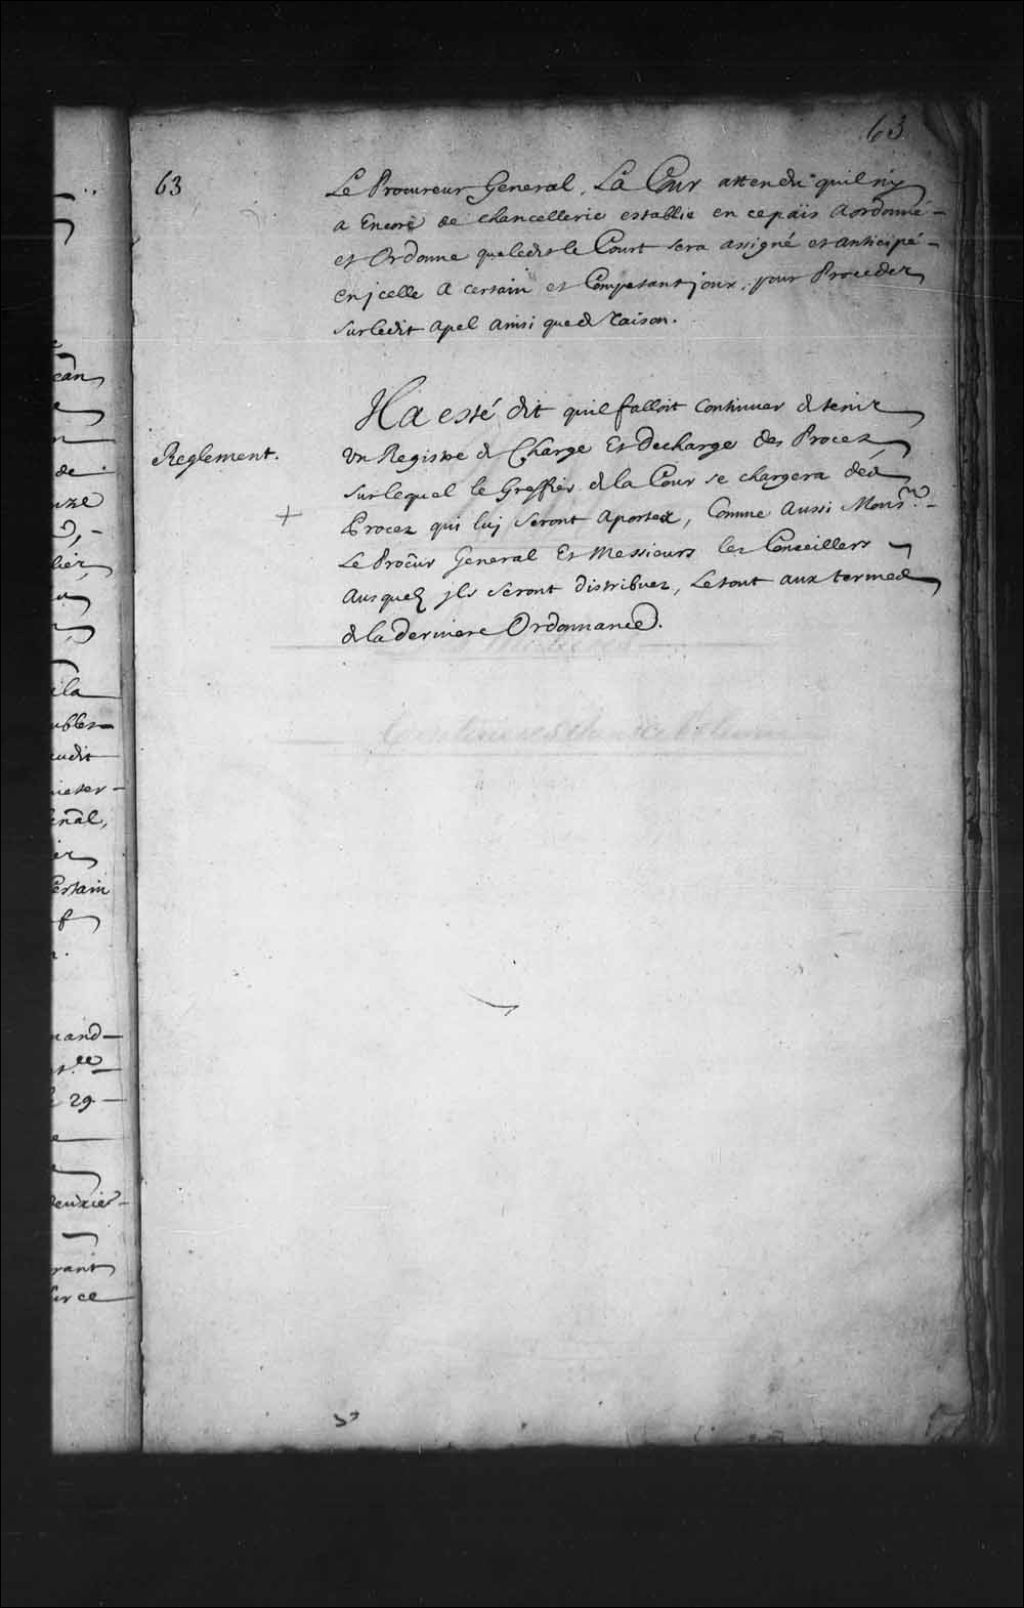 63
63
Le Procureur General, La Cour attendu quil n'y
a Encore de chancellerie establie en ce païs a ordonné
et Ordonne que ledit le Court sera assigné et anticipé
en jcelle a certain et Competant jour, pour Proceder
sur ledit apel ainsi que de raison.
Il a esté dit quil falloit continuer de tenir
Reglement.
un Registre de Charge Et decharge des Procez
sur lequel le Greffier de la Cour se chargera des
+
Procez qui luj seront aportez, Comme aussi Mons.r
Le Procür General Et Messieurs les Conseillers
ausquelz jls seront distribuez, Le tout aux termes
de la derniere Ordonnance.